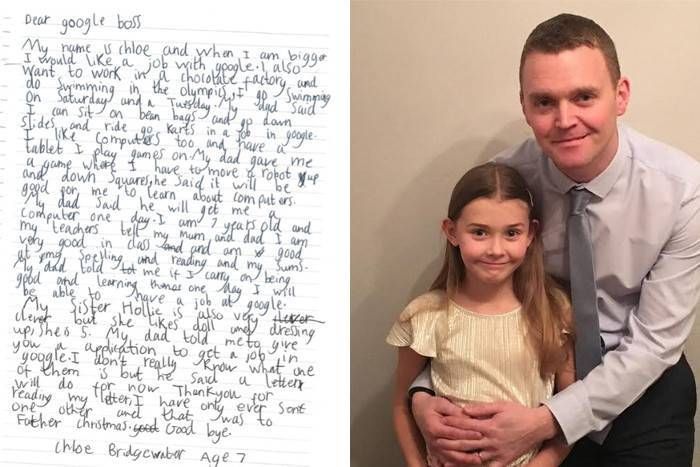 Dear google boss
My name is Chloe and when I am bigger
I would like a job with google. I also
want to work in a chocolate factory and
do swimming in the olympics, I go swimming
on Saturday and a Tuesday. My dad said
I can sit on bean bags and go down
slides and ride go karts in a job in google.
I like computers too and have a
tablet I play games on. My dad gave me
a game where I have to move a robot up
and down squares, he said it will be
good for me to learn about computers.
My dad said he will get me a
computer one day. I am 7 years old and
my teachers tell my mum and dad I am
very good in class and and am good
at my spelling and reading and my sums.
My dad told me if I carry on being
good and learning things one day I will
be able to have a job at google.
My sister Hollie is also very
clever but she likes doll and dressing
up, she is 5. My dad told me to give
you a application to get a job in
google. I don't really know what one
of them is but he said a letter
will do for now. Thank you for
reading my letter, I have only ever sent
one other and that was to
Father christmas. good Good bye.
Chloe Bridgewater Age 7